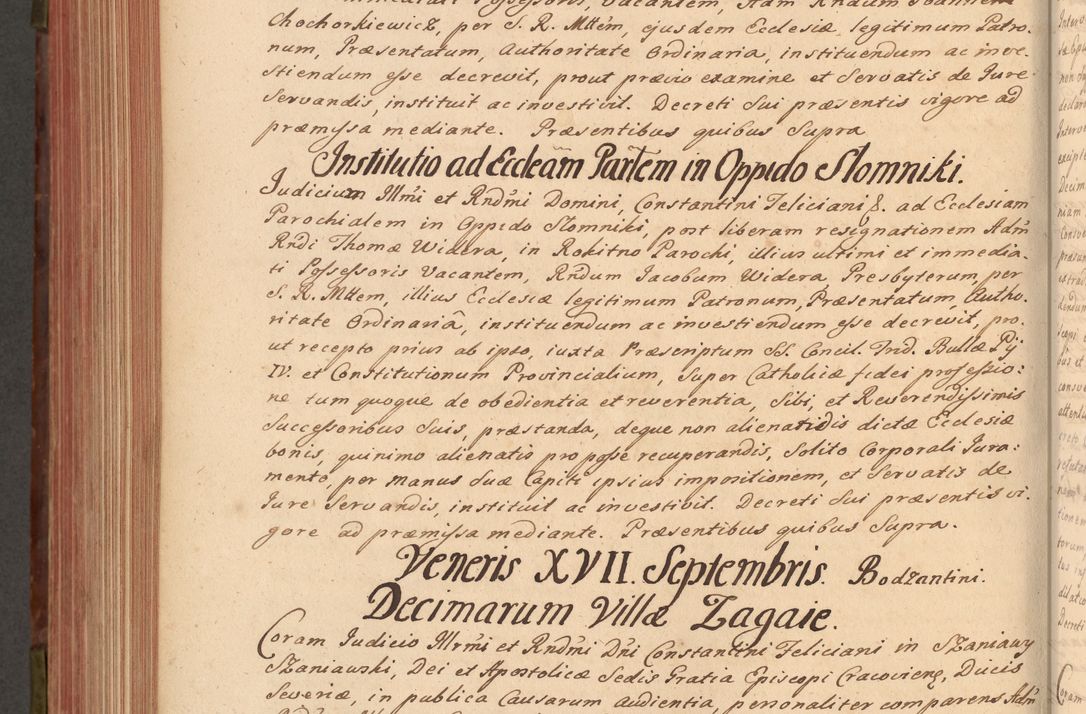 Possessoris, Vacantem, Adm Rndum Joannem
Chochorkiewicz, per S. R. Mttem, ejusdem Ecclesiæ, legitimum Patro-
num, Præsentatum, Authoritate Ordinaria, instituendum ac inve-
stiendum esse decrevit, prout prævio examine et Servatis de Jure
Servandis, instituit ac investivit. Decreti Sui præsentis vigore ad
præmissa mediante. Præsentibus quibus Supra
Institutio ad Eccleam Partem in Oppido Słomniki.
Judicium Illrmi et Rndmi Domini, Constantini Feliciani &. ad Ecclesiam
Parochialem in Oppido Słomniki, post liberam resignationem Adm
Rndi Thomæ Widera, in Rokitno Parochi, illius ultimi et immedia-
ti Possessoris Vacantem, Rndum Jacobum Widera, Presbyterum, per
S. R. Mttem, illius Ecclesiæ legitimum Patronum, Præsentatum, Autho-
ritate Ordinariâ, instituendum ac investiendum esse decrevit, pro-
ut recepto prius ab ipso, iuxta Præscriptum SS. Concil. Trid. Bullæ Pij
IV. et Constitutionum Provincialium, Super Catholicæ fidei professio:
ne tum quoque de obedientia et reverentia, Sibi, et Reverendissimis
Successoribus Suis, præstanda, deque non alienatidis dictæ Ecclesiæ
bonis, quinimo alienatis pro posse recuperandis, Solito Corporali Jura:
mento, per Manus Suæ Capiti ipsius impositionem, et Servatis de
Jure Servandis, instituit ac investivit. Decreti Sui præsentis vi-
gore ad præmissa mediante. Præsentibus quibus Supra.
Veneris XVII. Septembris. Bodzantini.
Decimarum Villæ Zagaie.
Coram Judicio Illrmi et Rndmi Dni Constantini Feliciani in Szaniawy
Szaniawski, Dei et Apostolicæ Sedis Gratia Episcopi Cracovienę, Ducis
Severiæ, in publica Causarum Audientia, personaliter comparens Adm